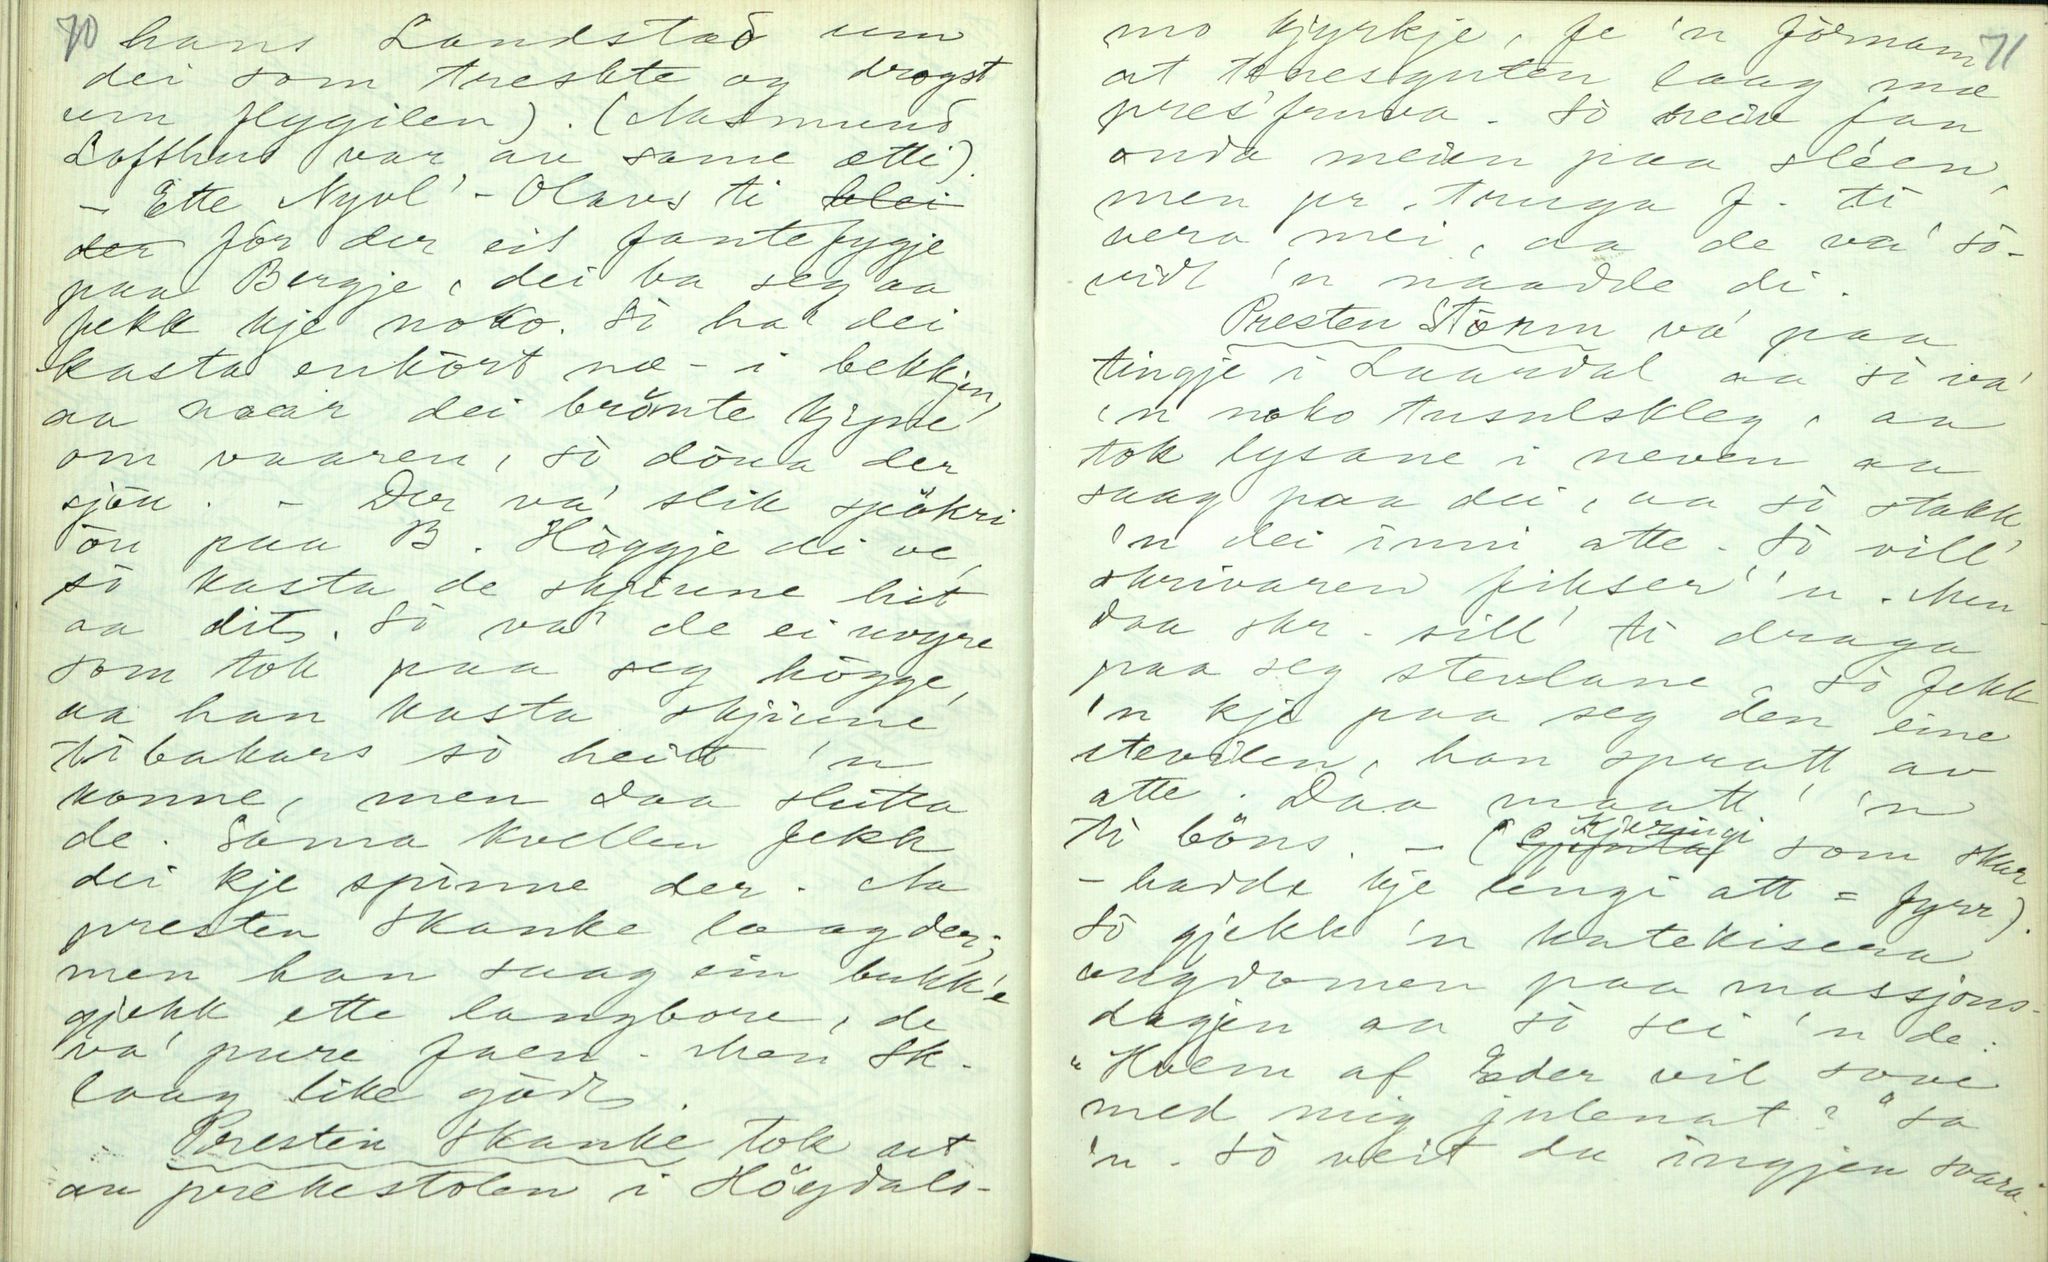 70
hans Landstad um
dei som treskte og drogst
um flygilen). (Aasmund
Lofthus var av same ætti).
– Ette Nyvl'-Olavs ti blei
der fór der eit fantefygje
paa Bergje, dei ba seg aa
fekk kje noko. Sò ha' dei
kasta enkórt næ- i bekkjen,
aa naar dei brönte kjyne
om vaaren, sò döua der
sjöu. – Der va' slik spökri
òu paa B. Höggje di ve,
sò kasta de skjiune hit
aa dit. Sò va' de ei
som tok paa seg högge,
aa han kasta skjiune
tibakars sò heitt 'n
konne, men daa slutta
de. Sama kvellen fekk
dei kje spinne der. Aa
presten Skanke laag der;
men han saag ein bukk'e
gjekk ette langbore, de
va' pure faen. Men Sk.
laag like gödt.
Presten Skanke tok ut
av prekestolen i Höydals-
71
mo kjyrkje, fe 'n fórnam
at tenesguten laag mæ
pres'fruva. Sò reiv fan
onda meien paa sléen,
men pr. truga f. ti
vera mei, aa de va' sò-
vidt 'n naadde di.
Presten Storm va' paa
tingje i Laardal aa sò va'
'n noko tusulskleg, aa
tok lysane i neven aa
saag paa dei, aa sò stakk
'n dei inni atte. Sò vill'
skrivaren fikser' 'n. Men
daa skr. sill' ti draga
paa seg stevlane, sò fekk
'n kje paa seg den eine
stevilen, han spratt av
atte. Daa maatt' 'n
ti böns. – ( kjeringi som skar
– hadde kje lengi att = fyrr).
Sò gjekk 'n katekisera
ungdomen paa massjons-
dagjen aa sò sei 'n de:
"Hvem af Eder vil sove
med mig julenat?" sa
'n. Sò veit du ingjen svara.